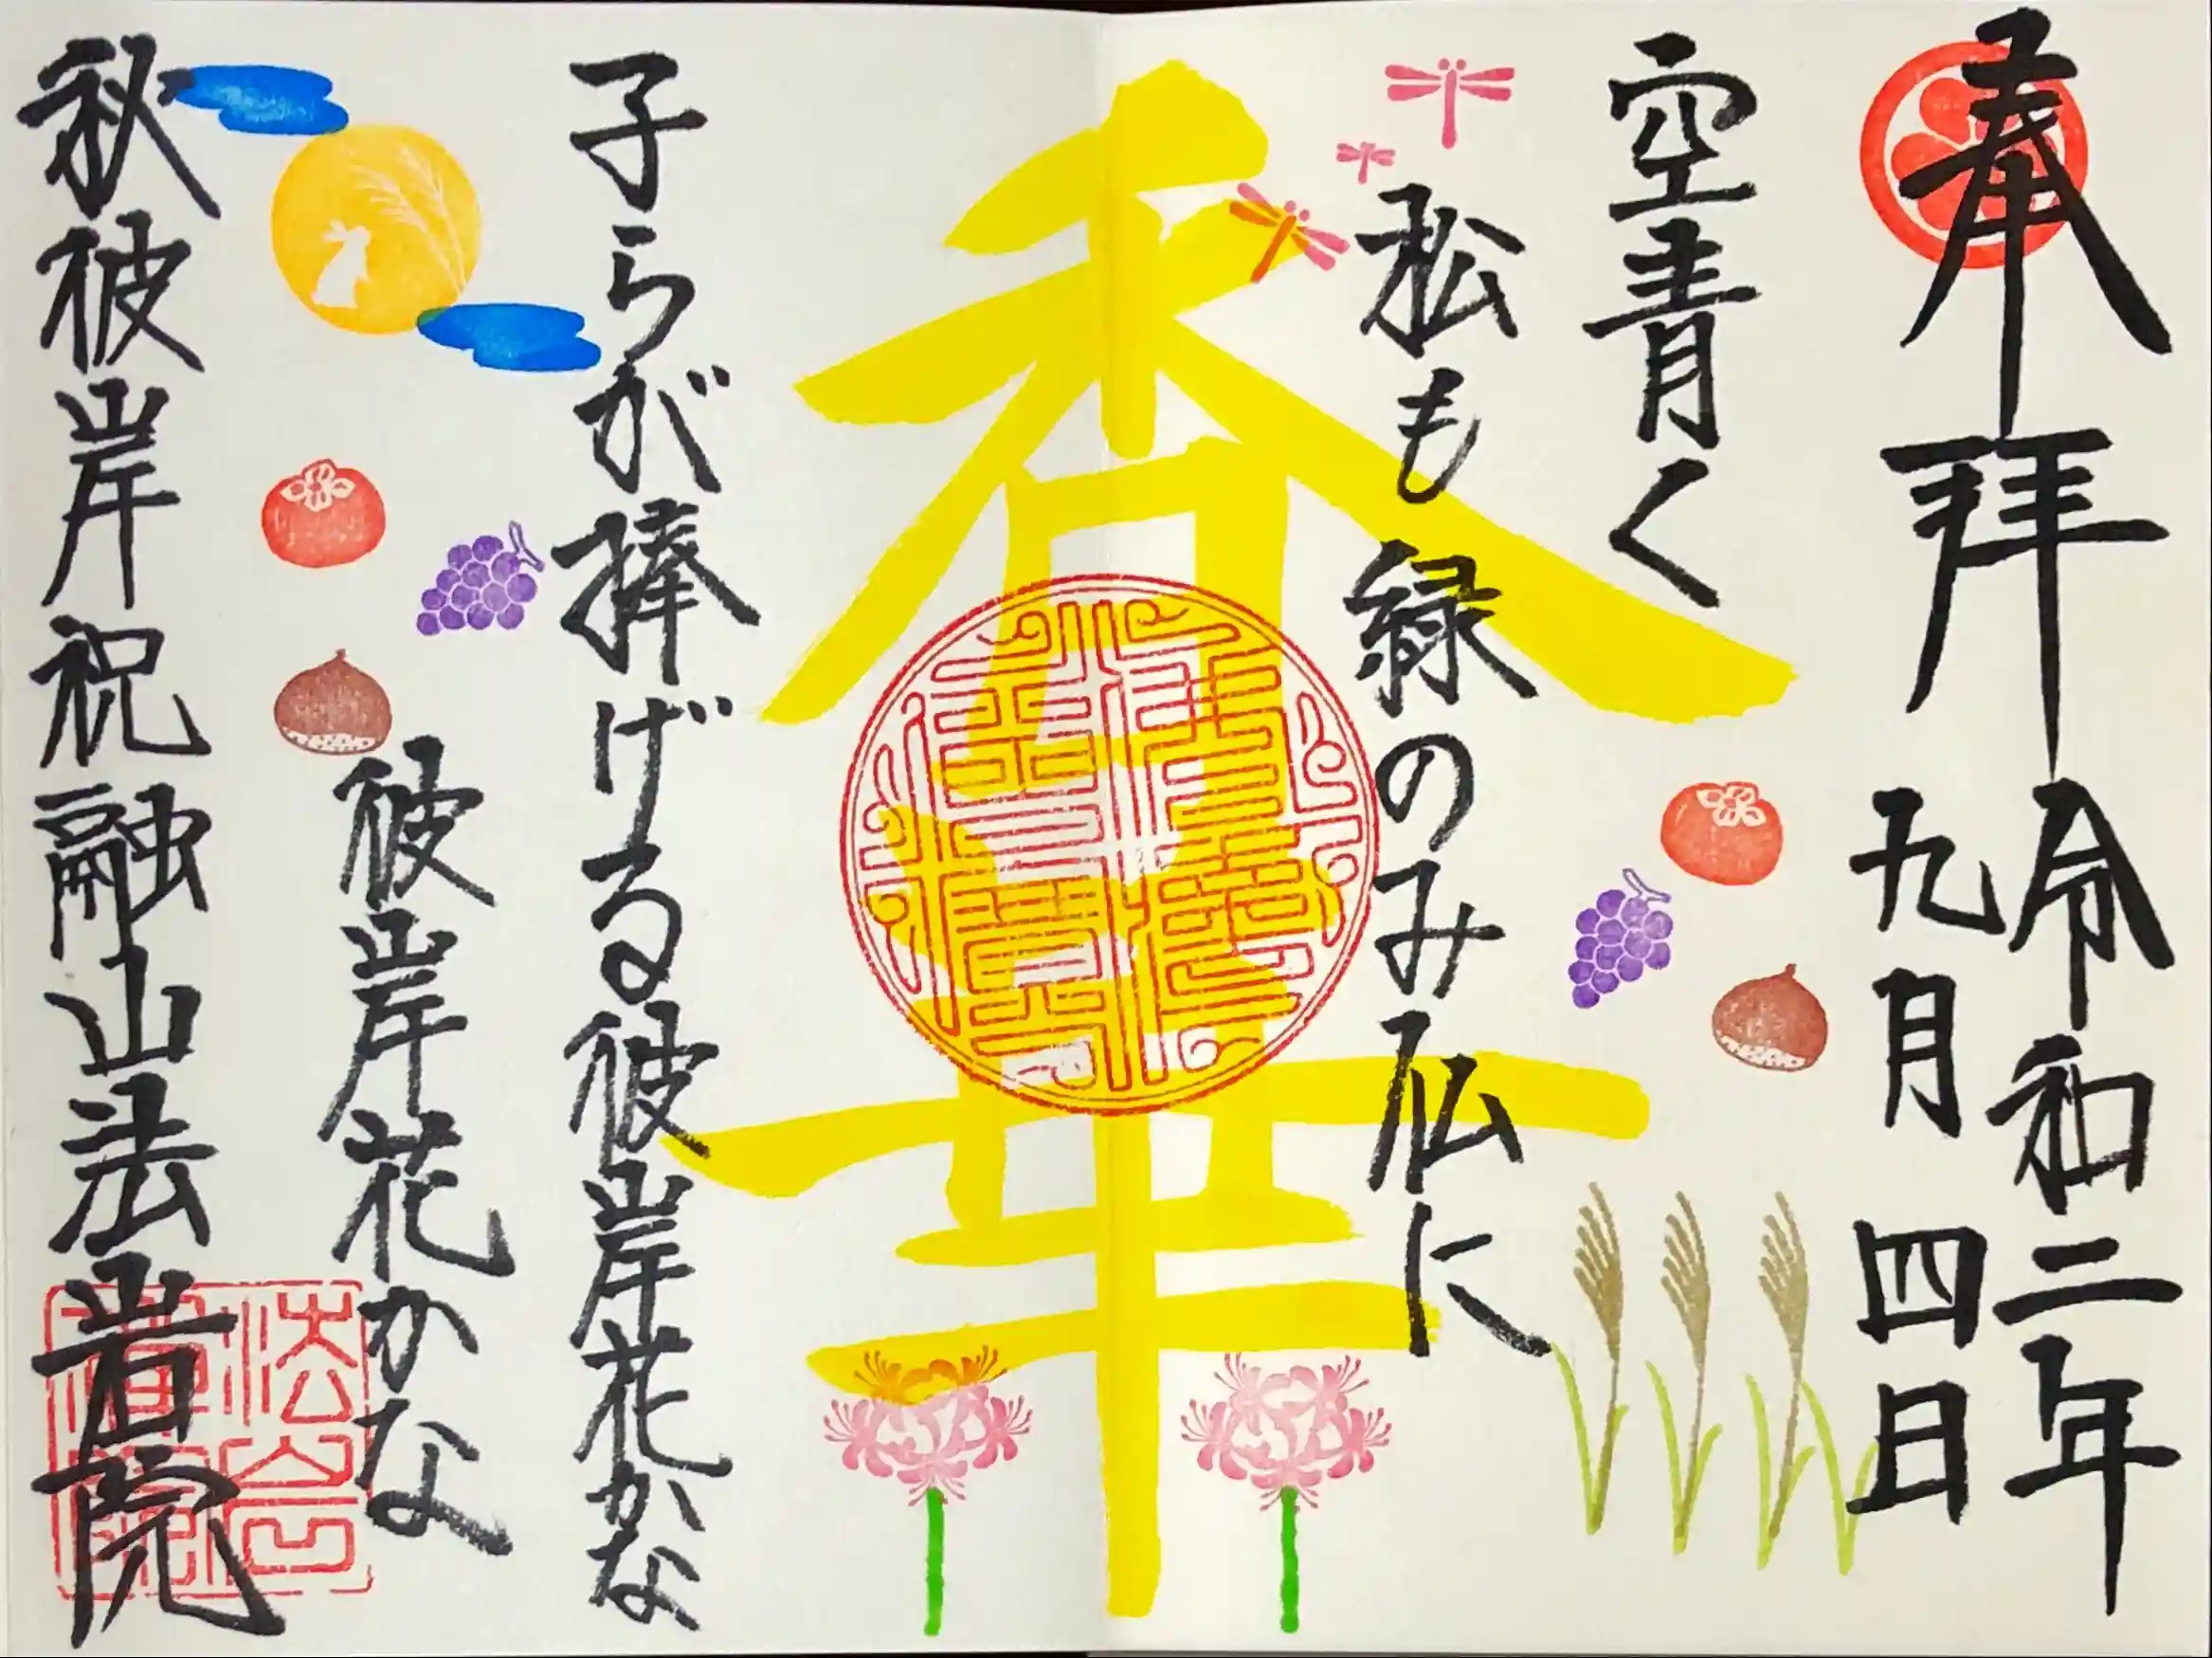 奉拝 令和二年
九月四日
空青く
松も緑のみ仏に
香華
子らが捧げる彼岸花かな
彼岸花かな
秋彼岸祝融山法岩院